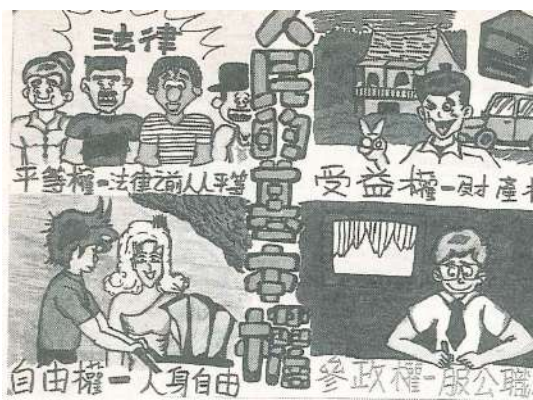 人民的基本權
法律
平等權-法律之前人人平等
受益權-財產
自由權-人身自由
參政權-服公職